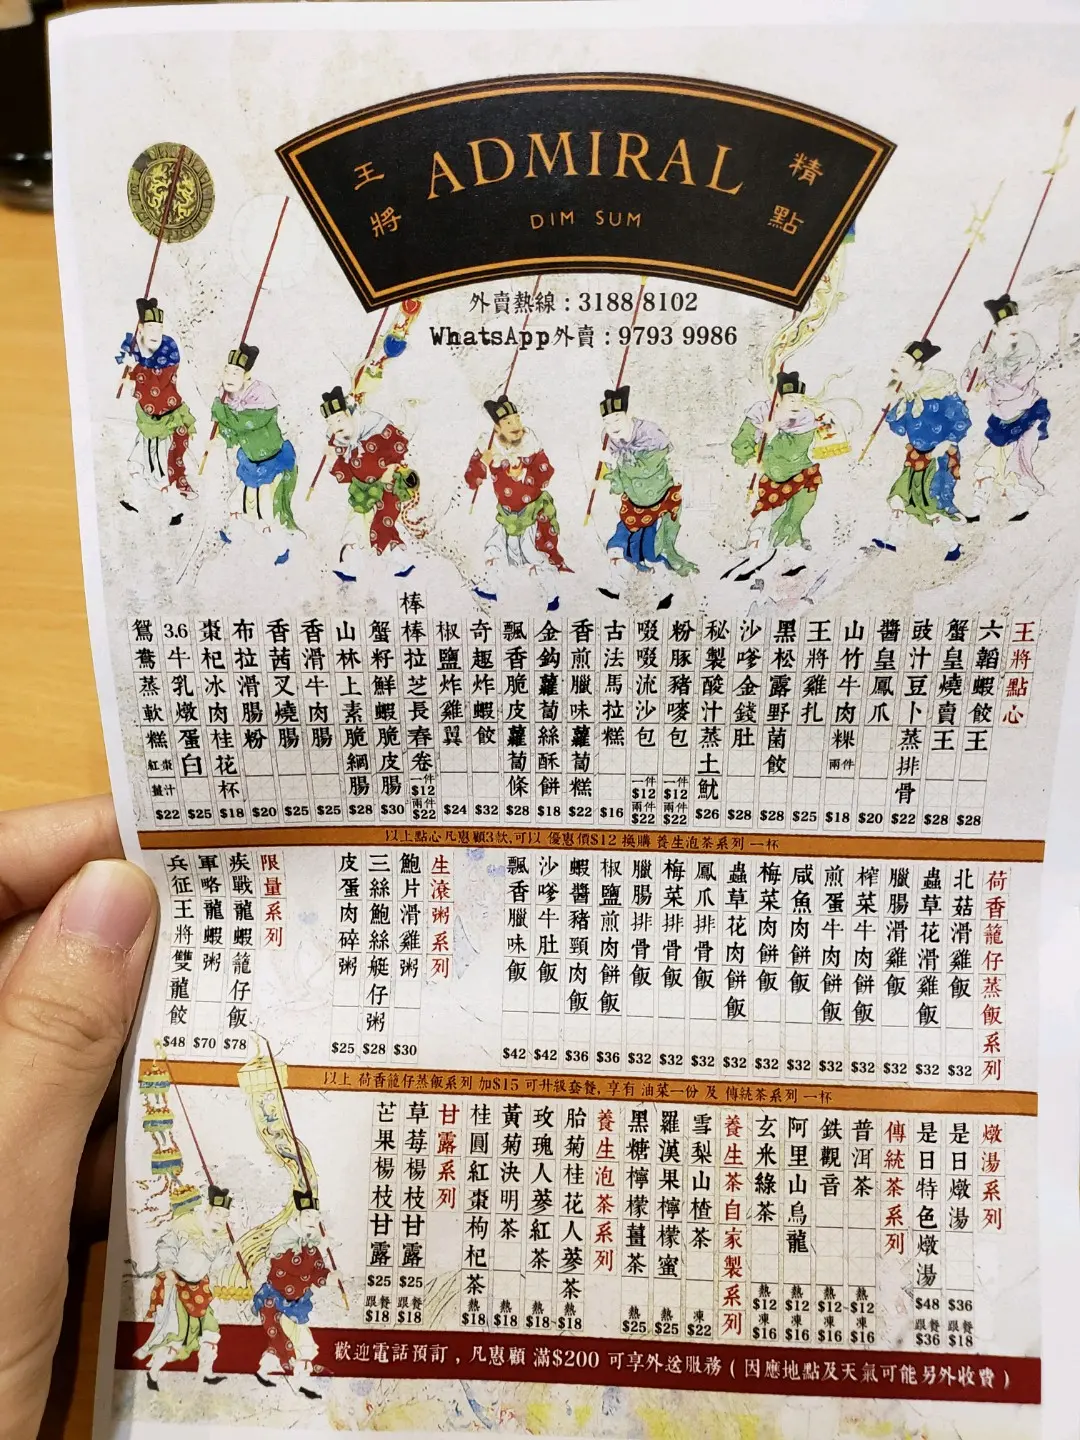 王將
ADMIRAL
DIM SUM
精點
外賣熱線：3188 8102
WhatsApp外賣：9793 9986
王將點心
六韜蝦餃王 $28
蟹皇燒賣王 $28
豉汁豆卜蒸排骨 $22
醬皇鳳爪 $20
山竹牛肉粿 兩件 $18
王將雞扎 $25
黑松露野菌餃 $28
沙嗲金錢肚 $28
秘製酸汁蒸土魷 $26
粉豚豬嘜包 一件$12 兩件$22
啜啜流沙包 一件$12 兩件$22
古法馬拉糕 $16
香煎臘味蘿蔔糕 $22
金鈎蘿蔔絲酥餅 $18
飄香脆皮蘿蔔條 $28
奇趣炸蝦餃 $32
椒鹽炸雞翼 $24
棒棒拉芝長春卷 一件$12 兩件$22
蟹籽鮮蝦脆皮腸 $30
山林上素脆網腸 $28
香滑牛肉腸 $25
香茜叉燒腸 $25
布拉滑腸粉 $20
棗杞冰肉桂花杯 $18
3.6牛乳燉蛋白 $25
鴛鴦蒸軟糕 紅棗 薑汁 $22
以上點心凡惠顧3款,可以 優惠價$12 換購 養生泡茶系列 一杯
荷香籠仔蒸飯系列
北菇滑雞飯 $32
蟲草花滑雞飯 $32
臘腸滑雞飯 $32
榨菜牛肉餅飯 $32
煎蛋牛肉餅飯 $32
咸魚肉餅飯 $32
梅菜肉餅飯 $32
蟲草花肉餅飯 $32
鳳爪排骨飯 $32
梅菜排骨飯 $32
臘腸排骨飯 $32
椒鹽煎肉餅飯 $36
蝦醬豬頸肉飯 $36
沙嗲牛肚飯 $42
飄香臘味飯 $42
生滾粥系列
鮑片滑雞粥 $30
三絲鮑絲艇仔粥 $28
皮蛋肉碎粥 $25
限量系列
疾戰龍蝦籠仔飯 $78
軍略龍蝦粥 $70
兵征王將雙龍餃 $48
以上 荷香籠仔蒸飯系列 加$15 可升級套餐, 享有 油菜一份 及 傳統茶系列 一杯
燉湯系列
是日燉湯 $36 跟餐$18
是日特色燉湯 $48 跟餐$36
傳統茶系列
普洱茶 熱$12 凍$16
鐵觀音 熱$12 凍$16
阿里山烏龍 熱$12 凍$16
玄米綠茶 熱$12 凍$16
養生茶自家製系列
雪梨山楂茶 凍$22
羅漢果檸檬蜜 熱$25
黑糖檸檬薑茶 熱$25
養生泡茶系列
胎菊桂花人蔘茶 熱$18
玫瑰人蔘紅茶 熱$18
黃菊決明茶 熱$18
桂圓紅棗枸杞茶 熱$18
甘露系列
草莓楊枝甘露 $25 跟餐$18
芒果楊枝甘露 $25 跟餐$18
歡迎電話預訂，凡惠顧 滿$200 可享外送服務（因應地點及天氣可能另外收費）